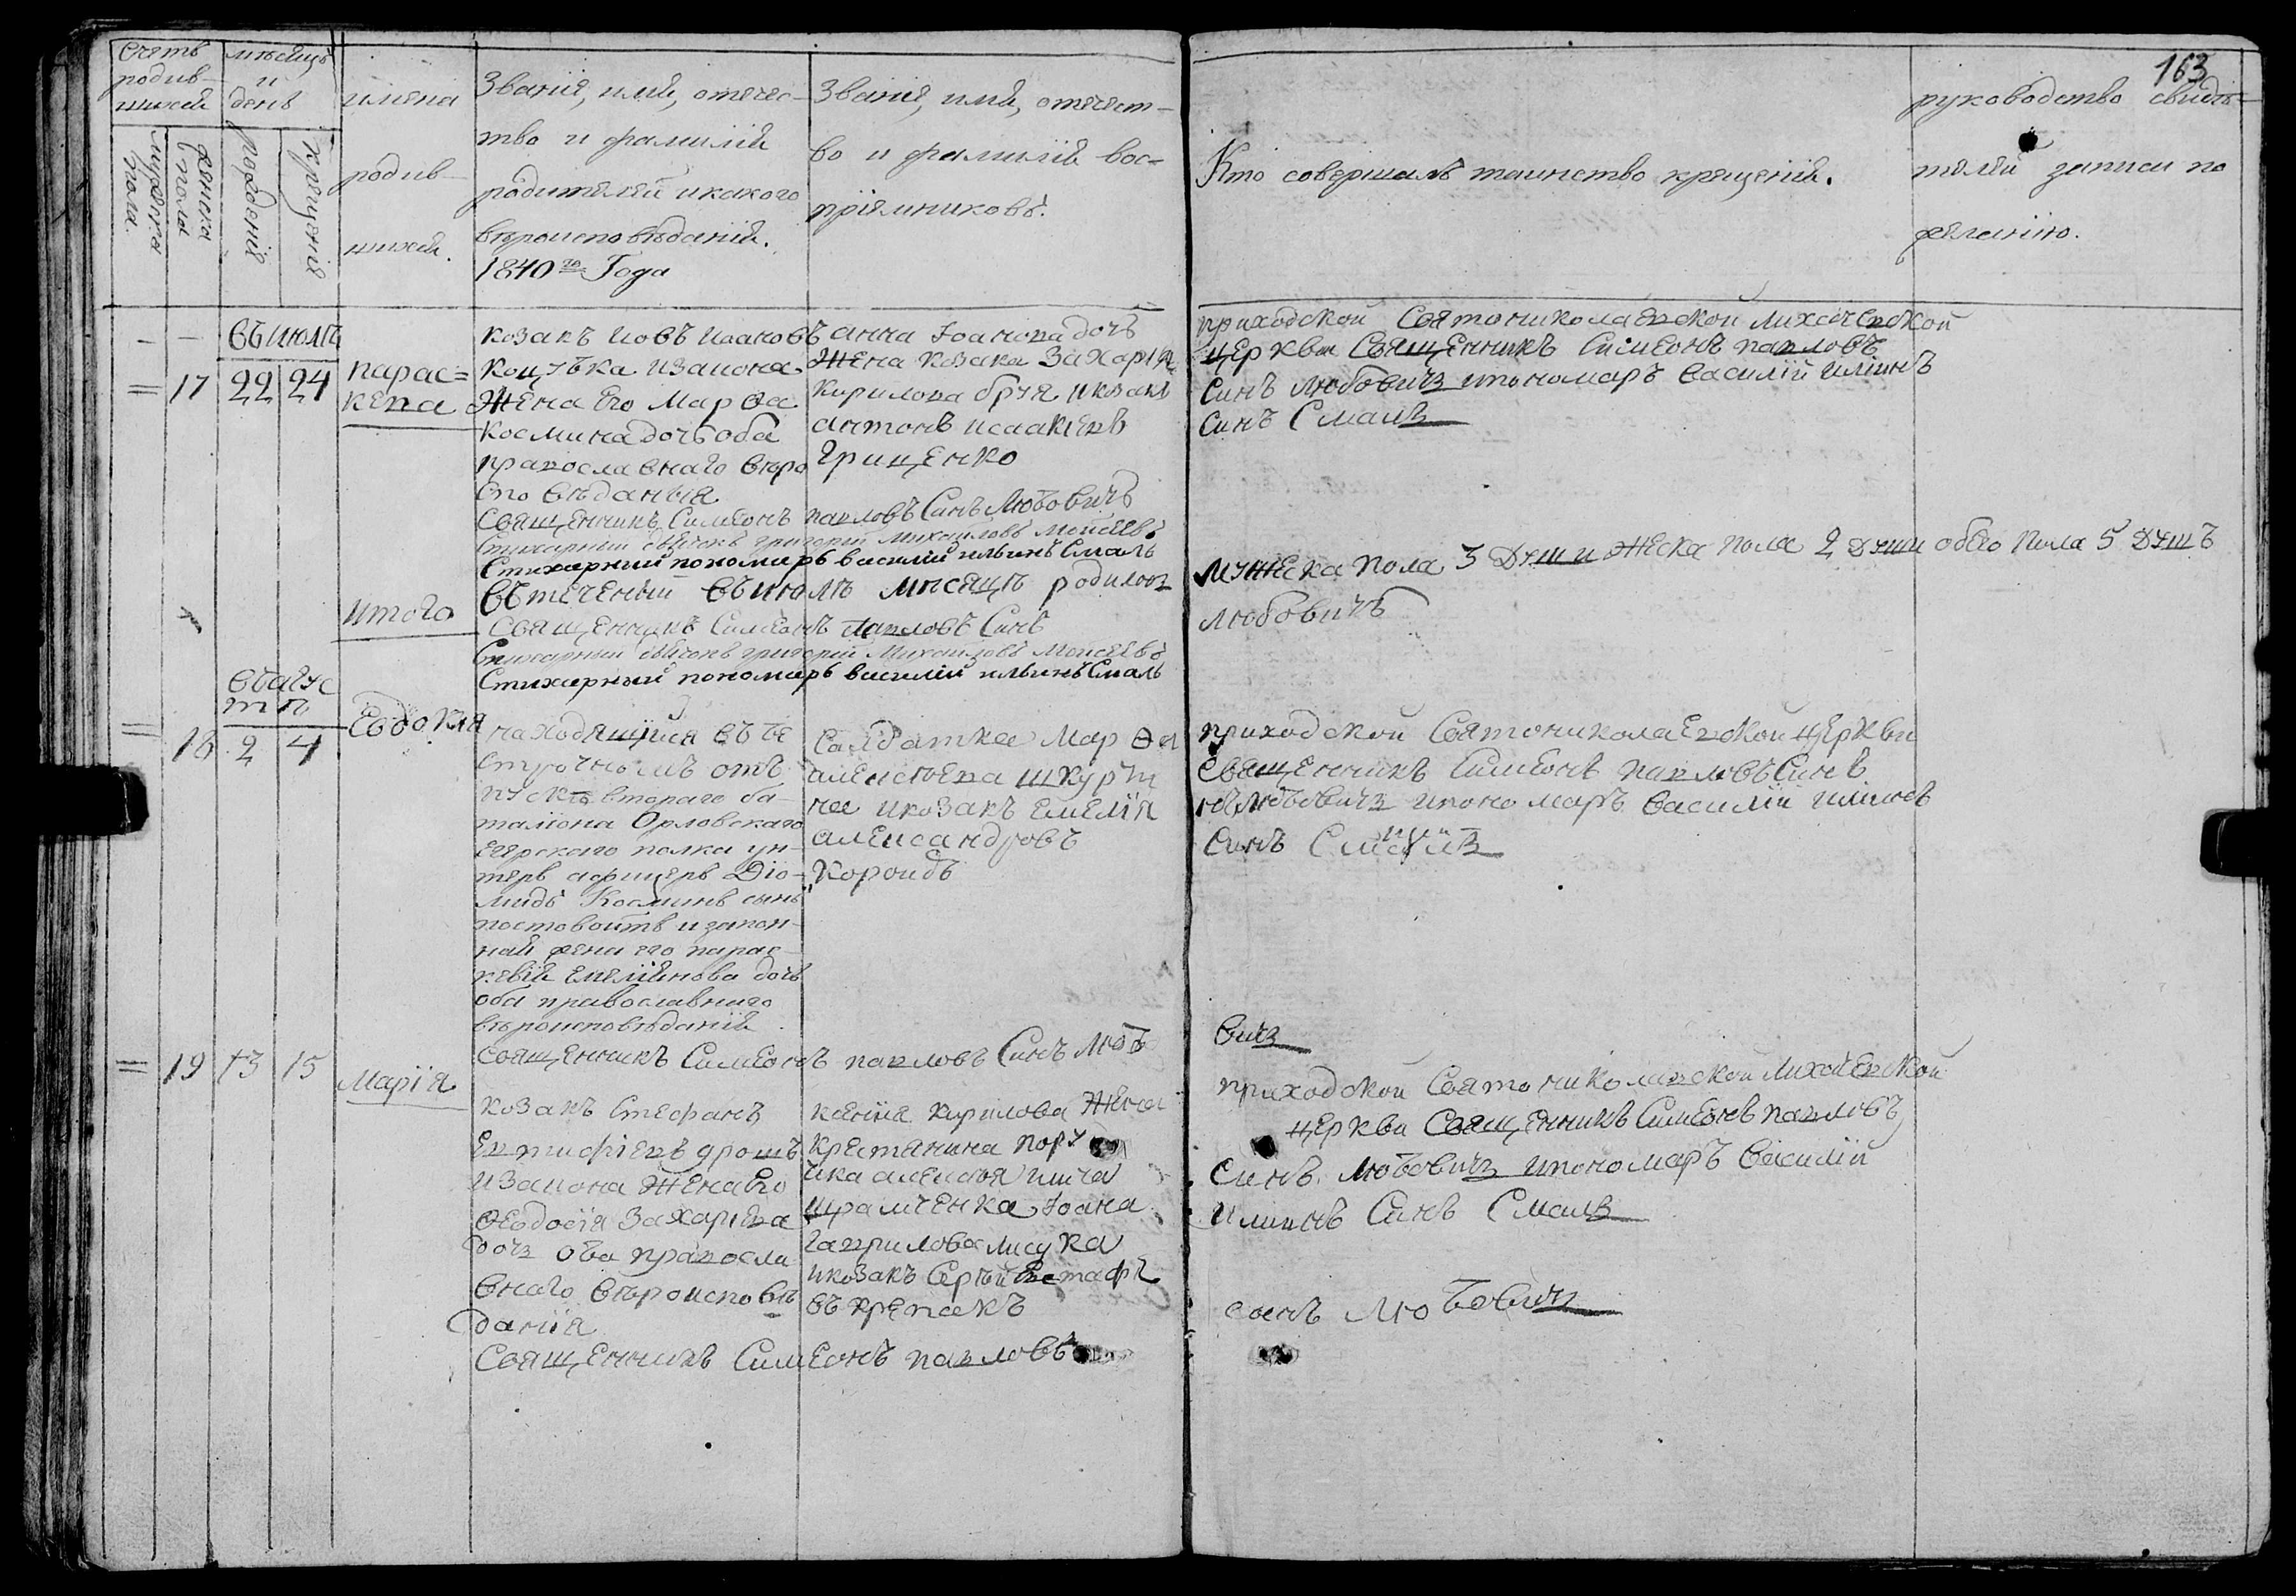 163
Счетъ родив- шихся
мѣсяцъ и день
мужеска пола
женска пола
рожденія
крещенія
имена
родив-
шихся.
Званіе, имя, отечес-
тво и фамилія
родителей и какого
вѣроисповѣданія.
1840го Года
Званіе, имя, отечест-
во и фамилія вос-
пріемниковъ.
Кто совершалъ таинство крещенія.
руководство свидѣ-
телей записи по
желанію.
въ июлѣ
17 22 24
парас=
кева
козакъ иовъ иоановъ
коцубка изаиона
жена его Марѳа
космина дочь оба
православнаго вѣро
спо вѣданыя
анна Іоанова дочь
жена козака Захарія
Кирилова бруя и козакъ
антонъ исаакіевъ
грищенко
приходской Святониколаевской лихачевской
церкви Священникъ Симеонъ павловъ
Синъ Любовичъ ипономаръ василій илиинъ
Синъ Смаль
Священникъ Симеонъ павловъ Синъ Любовичъ
Стихарный дьячокъ григорій Михайловъ Мойсеевъ
Стихарный пономарь василій ильинъ Смаль
итого
въ теченыи въ июлѣ мѣсяцѣ родилось
мужеска пола 3 Души жеска пола 2 души обего пола 5 душъ
Священникъ Симеонъ павловъ Синъ
любовичъ
Стихарный дьячокъ григорій Михайловъ Мойсеевъ
Стихарный пономарь василій ильинъ Смаль
въ авгус
тѣ
18 2 4
Евдокия
находящійся въ бе
строчномъ отъ
пускѣ втораго ба-
таліона Орловскаго
егерскаго полка ун-
теръ афицеръ Діо-
мидъ Косминъ сынъ
постовойтъ и закон-
ная жена его парас-
кевія емеліянова дочь
оба православнаго
вѣроисповѣданія
Салдатка Марѳа
алексѣева шкурѣн
на и козакъ емелія
александровъ
Короидъ
приходской Святониколаевской церкви
Священникъ Симеонъ павловъ Синъ
Любовичъ ипономаръ василій илиинъ
Синъ Смаль
Священникъ Симеонъ павловъ Синъ Любо
вичъ
19 13 15
Марія
козакъ Стефанъ
Евтифіевъ дрошъ
изаиона жена его
ѳеодосія Захаріева
дочь оба правосла
внаго вѣроисповѣ
данія
ксенія кирилова жена
крестянина пору
чика алексѣя илича
шрамченка Іоана
гаврилова лисука
икозакъ Сергѣй Евстафіе
въ хрепакъ
приходской Святониколаевской лихачевской
церкви Священникъ Симеонъ павловъ
Синъ Любовичъ ипономаръ василій
илиинъ Синъ Смаль
Священникъ Симеонъ павловъ
синъ Любовичъ